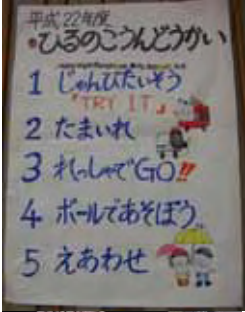 平成22年度
ひるのこうんどうかい
1 じゅんびたいそう
「TRY IT」
2 たまいれ
3 れっしゃでGO!!
4 ボールであそぼう
5 えあわせ